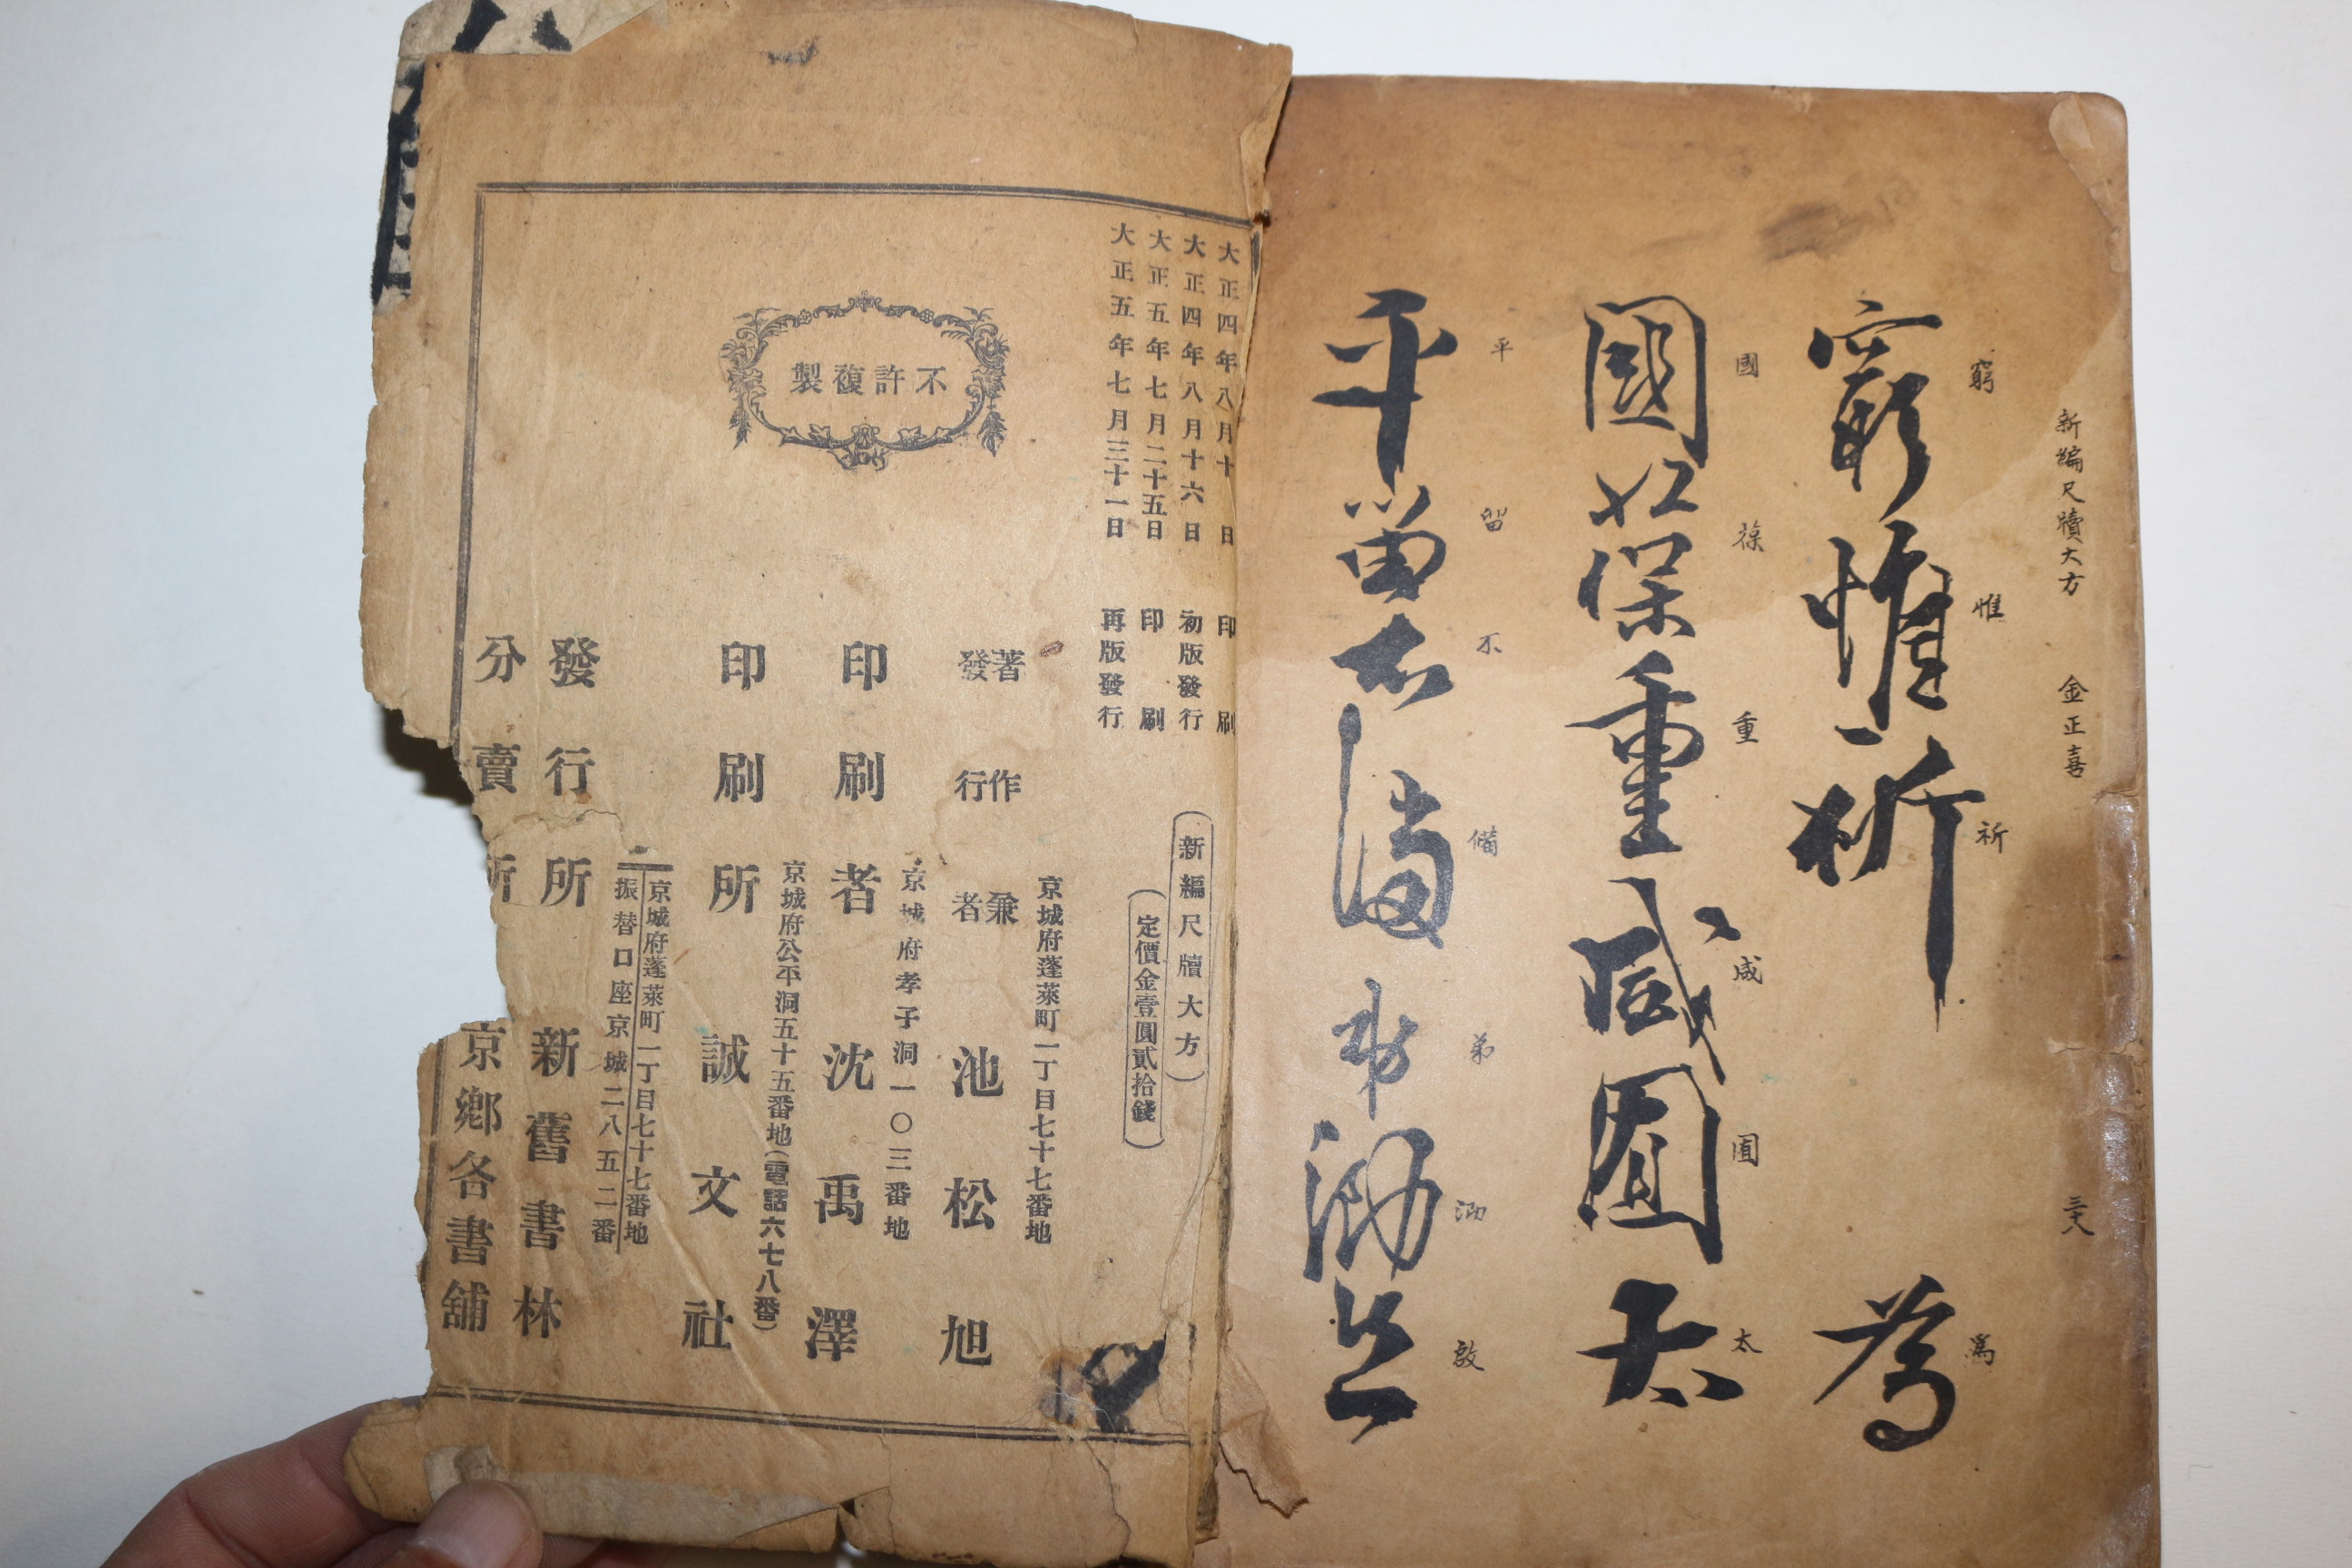 新編尺牘大方 金正喜 三十八
窮惟祈爲
窮惟祈爲
國葆重咸囿太
國葆重咸囿太
平留不備弟泐
平留不備弟泐
大正四年八月十日印刷
大正四年八月十六日初版發行
大正五年七月二十五日印刷
大正五年七月三十一日再版發行
(新編尺牘大方)
(定價金壹圓貳拾錢)
不許複製
京城府蓬萊町一丁目七十七番地
著作兼
發行者
池松旭
京城府孝子洞一〇三番地
印刷者 沈禹澤
京城府公平洞五十五番地(電話六七八番)
印刷所 誠文社
京城府蓬萊町一丁目七十七番地
振替口座京城二八五二番
發行所 新舊書林
分賣所 京鄉各書舖